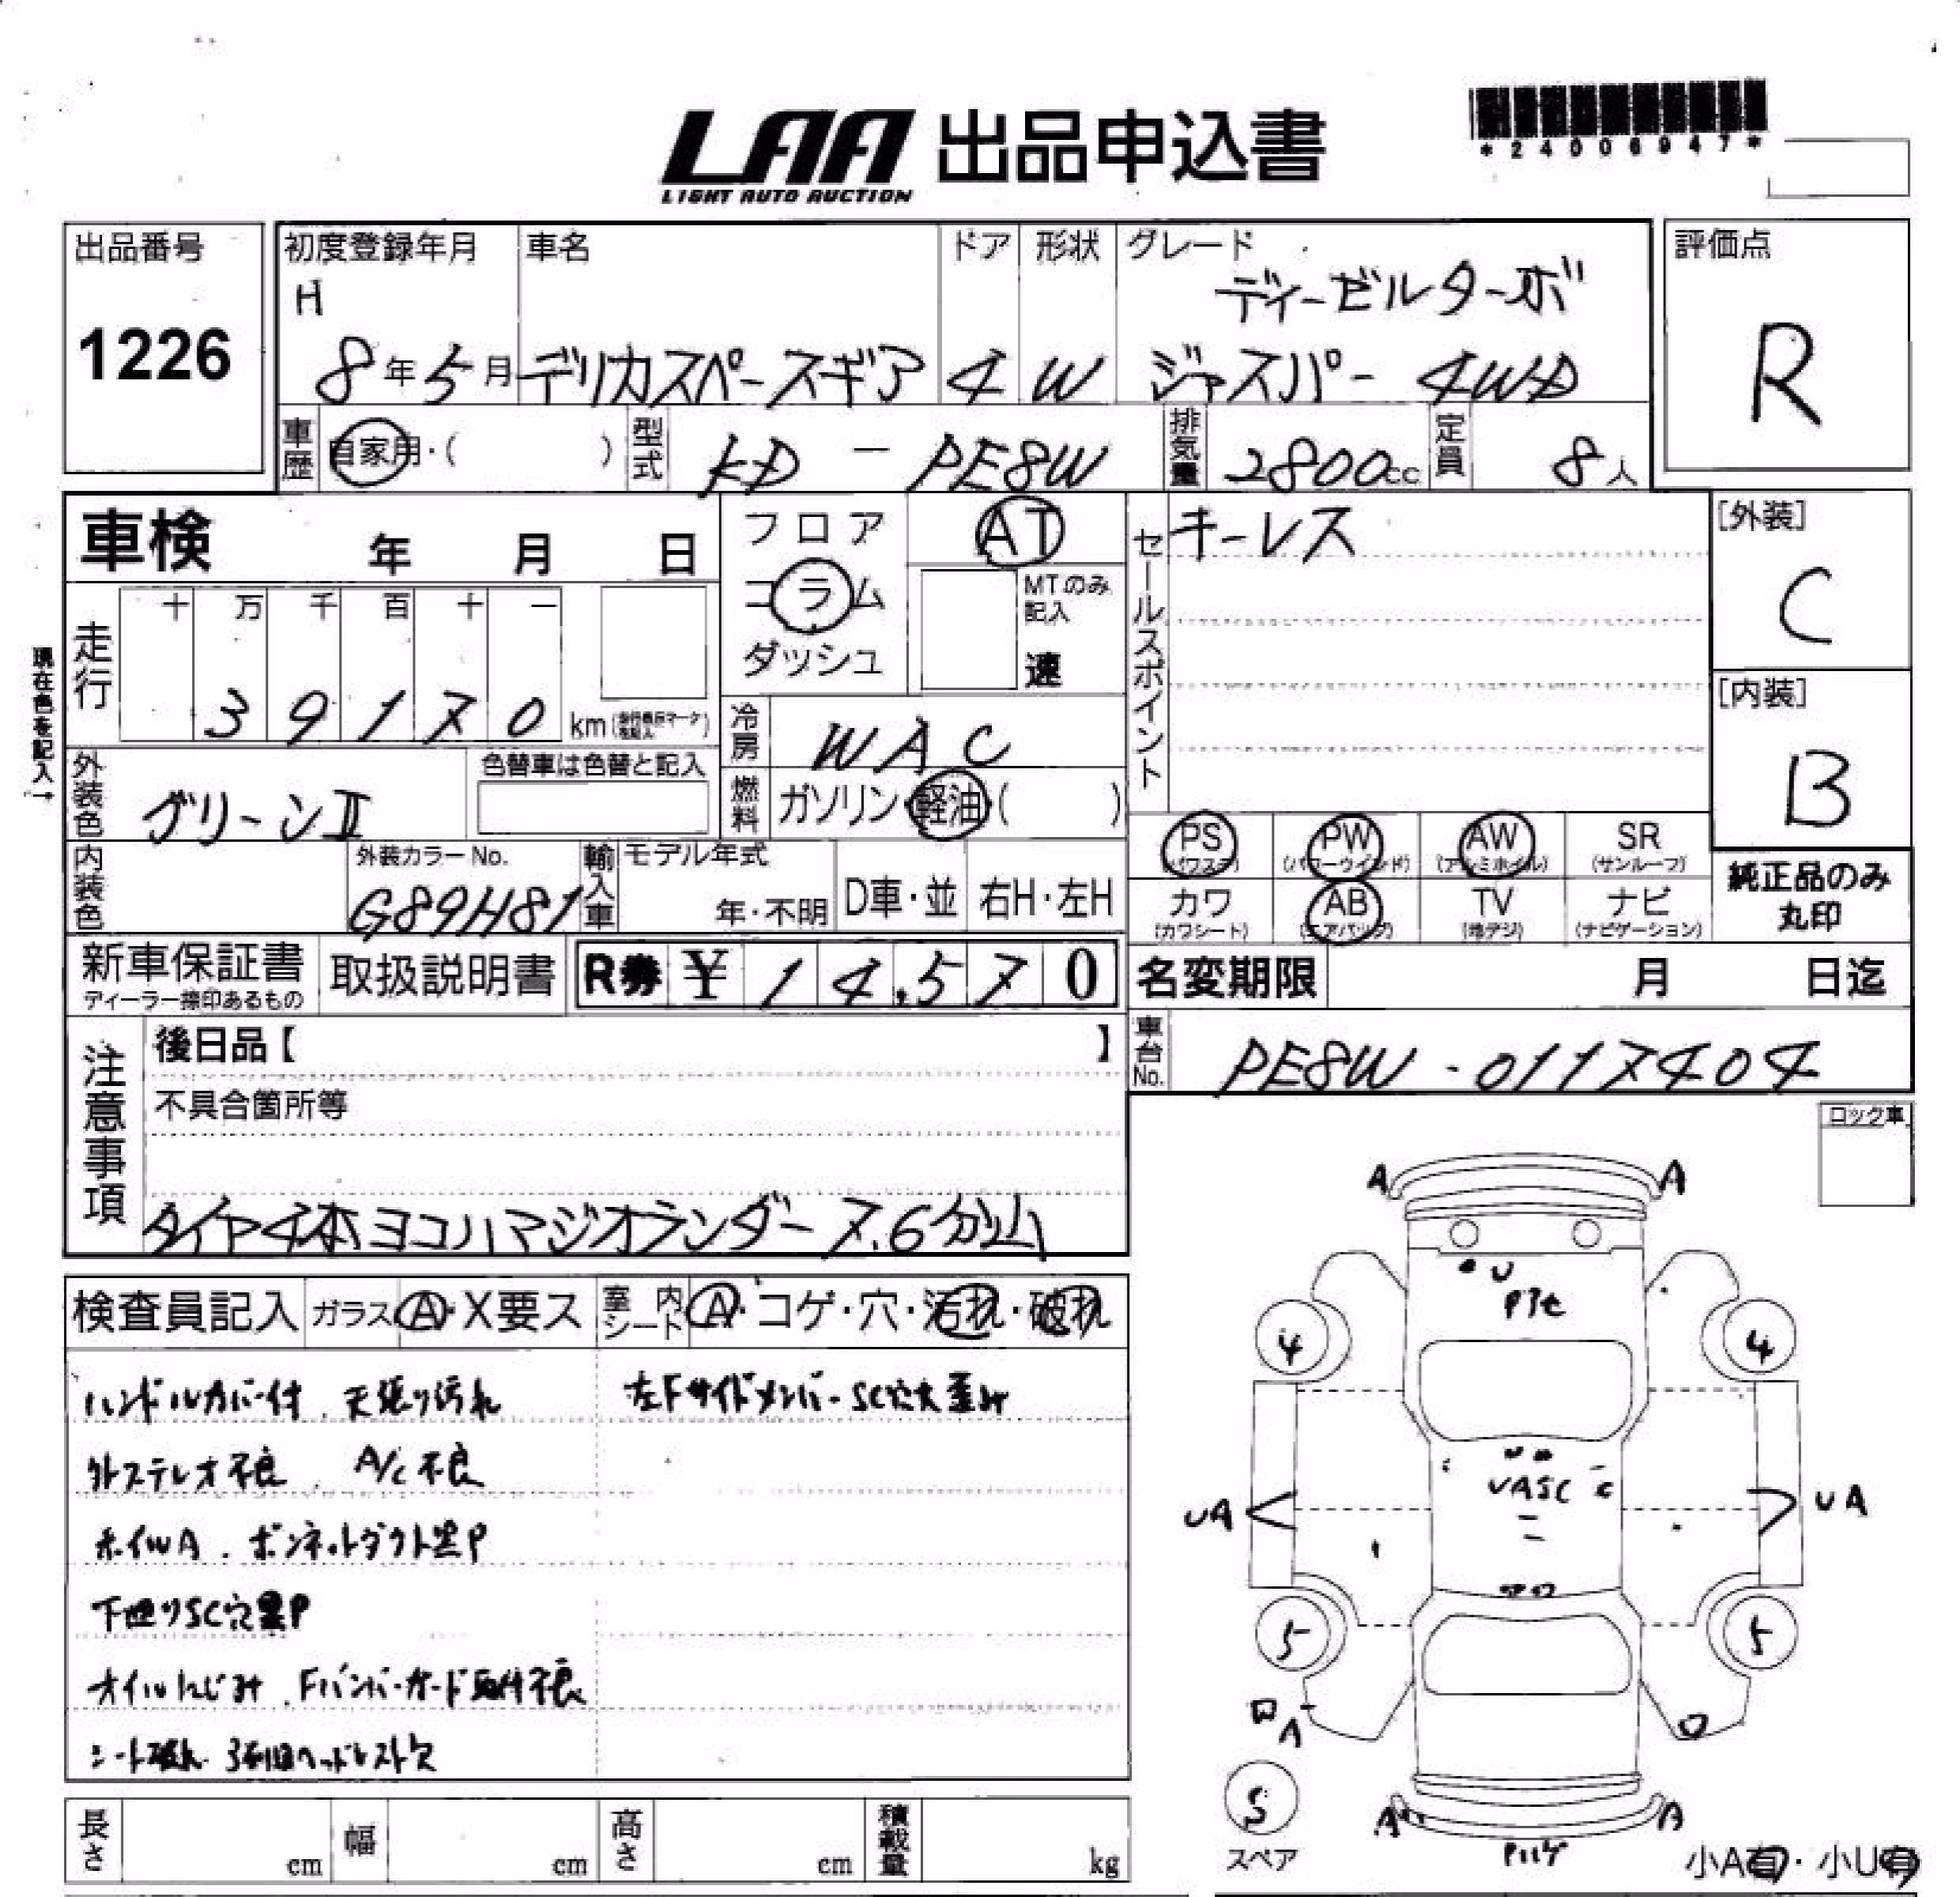 LAA 出品申込書
LIGHT AUTO AUCTION
*24006947*
出品番号
1226
初度登録年月
H
8年5月
車名
デリカスペースギア
ドア
4
形状
W
グレード
ディーゼルターボ
ジャスパー 4WD
評価点
R
車歴
自家用・( )
型式
KD - PE8W
排気量
2800cc
定員
8人
車検 年 月 日
フロア
コラム
ダッシュ
AT
MTのみ
記入
速
セールスポイント
キーレス
[外装]
C
[内装]
B
現在色を記入→
走行
十 万 千 百 十 一
3 9 1 7 0 km
冷房
WAC
外装色
グリーンII
色替車は色替と記入
燃料
ガソリン・軽油・( )
PS
(パワステ)
PW
(パワーウインド)
AW
(アルミホイル)
SR
(サンルーフ)
カワ
(カワシート)
AB
(エアバッグ)
TV
(地デジ)
ナビ
(ナビゲーション)
純正品のみ
丸印
内装色
外装カラーNo.
G89H81
輸入車
モデル年式
年・不明
D車・並
右H・左H
新車保証書
ディーラー捺印あるもの
取扱説明書
R券 ¥ 14,570
名変期限 月 日迄
車台No.
PE8W-0117404
注意事項
後日品【 】
不具合箇所等
タイヤ4本ヨコハマジオランダー 7.6分山
ロック車
検査員記入
ガラス A・X要ス
室内シート A・コゲ・穴・汚れ・破れ
ハンドルカバー付 . 天張り汚れ
外ステレオ不良 . A/C不良
ホイルA . ボンネットダクト黒P
下廻りSC穴黒P
オイルにじみ . Fバンパーガード取付不良
シート破れ 3列目ヘッドレスト欠
左FサイドメンバーSC穴大歪み
A A
U
4 4
UASC
UA UA
5 5
A
S
スペア
A A
小A有・小U有
長さ cm
幅 cm
高さ cm
積載量 kg